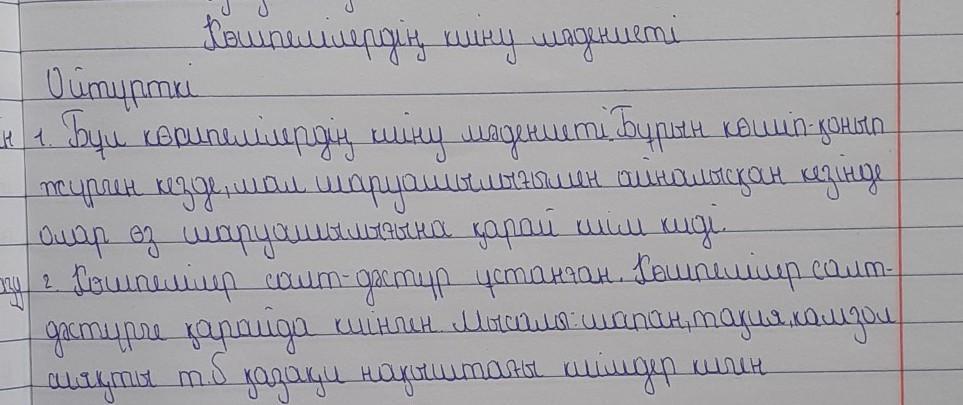 Көшпелілердің киіну мәдениеті
Ойтүрткі
1. Бұл көрипелілердің киіну мәдениеті. Бұрын көшіп-қонып
жүрген кезде, мал шаруашылығымен айналысқан кезінде
олар өз шаруашылығына қарай киім киді.
2. Көшпелілер салт-дәстүр ұстанған. Көшпелілер салт-
дәстүрге қарайда киінген Мысалы: шапан, тақия, камзол
сияқты т.б қазақи нақыштағы киімдер киген